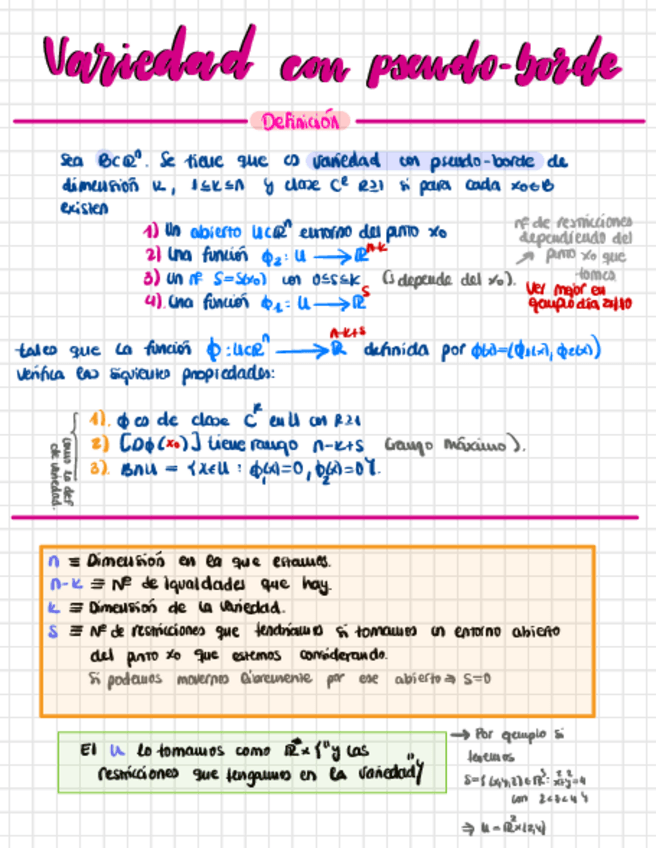 Variedad con pseudo-borde
Definición
Sea B⊂ℝⁿ. Se tiene que es variedad con pseudo-borde de
dimensión k, 1≤k≤n y clase Cᴿ R≥1 si para cada x₀∈B
existen
1) Un abierto U⊂ℝⁿ entorno del punto x₀
2) Una función ϕ₂: U ⟶ ℝⁿ⁻ᵏ
3) Un nº S=S(x₀) con 0≤s≤k (s depende del x₀).
4) Una función ϕ₁: U ⟶ ℝˢ
nº de restricciones
dependiendo del
↗ punto x₀ que
tomes
Ver mejor en
ejemplo día 21/10
tales que la función ϕ: U⊂ℝⁿ ⟶ ℝⁿ⁻ᵏ⁺ˢ definida por ϕ(x)=(ϕ₁(x), ϕ₂(x))
verifica las siguientes propiedades:
como la def
de variedad.
1). ϕ es de clase Cᴿ en U con R≥1
2) [Dϕ(x₀)] tiene rango n-k+s (rango máximo).
3). B∩U = {x∈U : ϕ₁(x)=0, ϕ₂(x)=0}.
n ≡ Dimensión en la que estamos.
n-k ≡ Nº de igualdades que hay.
k ≡ Dimensión de la variedad.
s ≡ Nº de restricciones que tendríamos si tomamos un entorno abierto
del punto x₀ que estemos considerando.
Si podemos movernos libremente por ese abierto ⇒ S=0
El U lo tomamos como ℝ x {"y las
restricciones que tengamos en la variedad"}
→ Por ejemplo si
tenemos
S={(x,y,z)∈ℝ³: x²+y²=4
con 2<z<4}
⇒ U=ℝ²x(2,4)